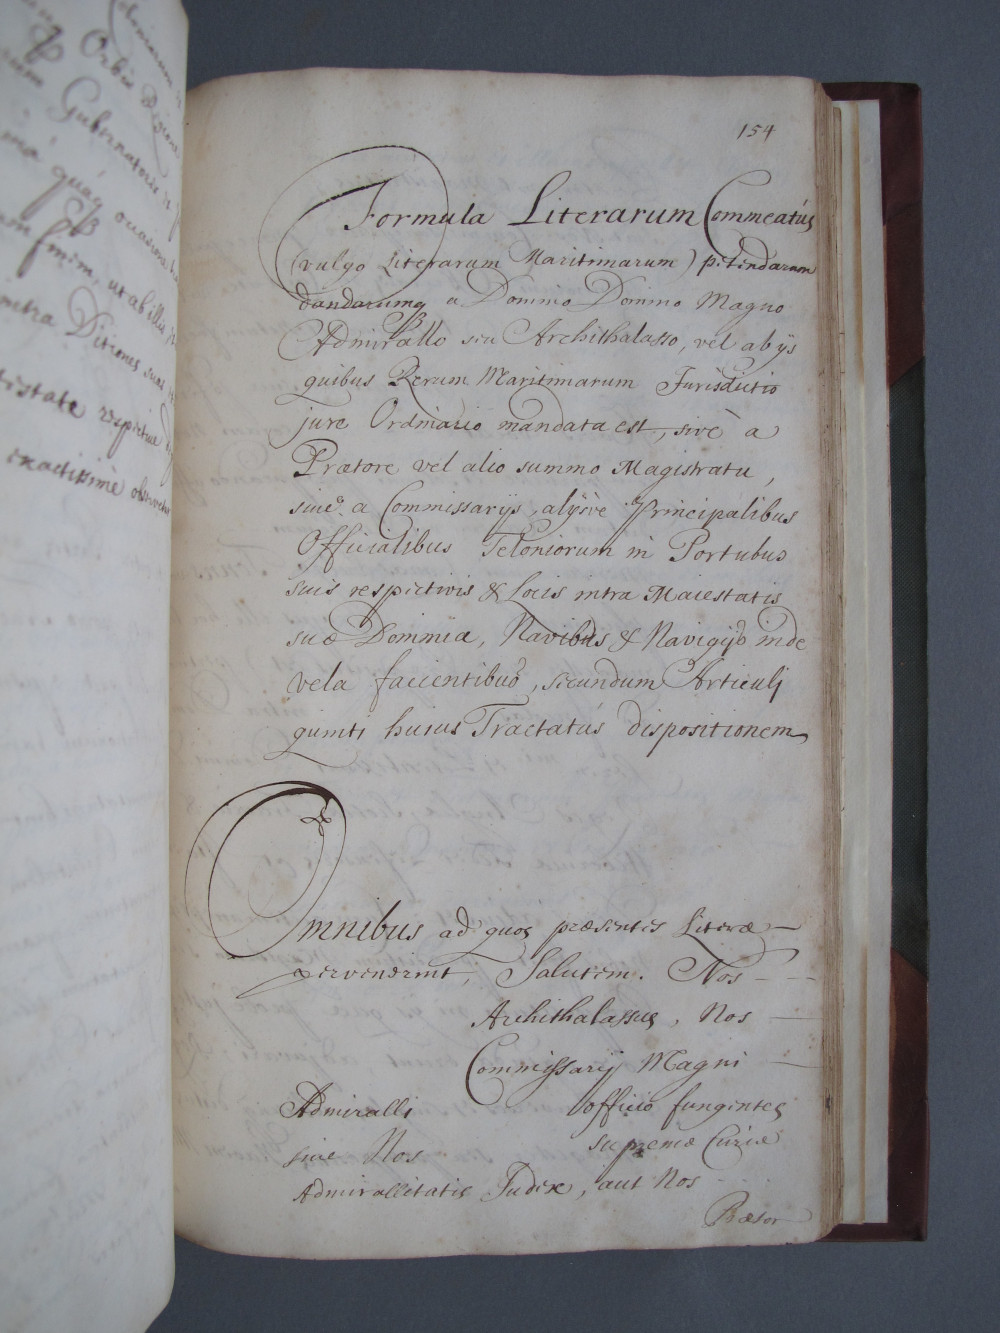 Orbis
Gubernatoris
quâq occasione
ut ab illis
Ditiones suas
exactissimè
154
Formula Literarum Commeatûs
(vulgo Literarum Maritimarum) petendarum
dandarumq a Domino Domino Magno
Admirallo seu Archithalasso, vel ab ijs
quibus Rerum Maritimarum Jurisdictio
jure Ordinario mandata est, sivè a
Prætore vel alio summo Magistratu,
sivè a Commissarijs, alijsve Principalibus
Officialibus Teloniorum in Portubus
suis respectivis & Locis intra Maiestatis
suæ Dominia, Navibus & Navigijs inde
vela facientibus, secundum Articuli
quinti huius Tractatûs dispositionem
Omnibus ad quos præsentes Literæ
pervenerint, Salutem. Nos
Archithalassus, Nos
Commissarij Magni
Admiralli officio fungentes
sive Nos supremæ Curiæ
Admirallitatis Judex, aut Nos
Prætor